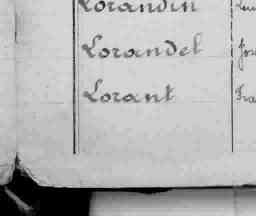 Lorandin
Lorandel
Lorant